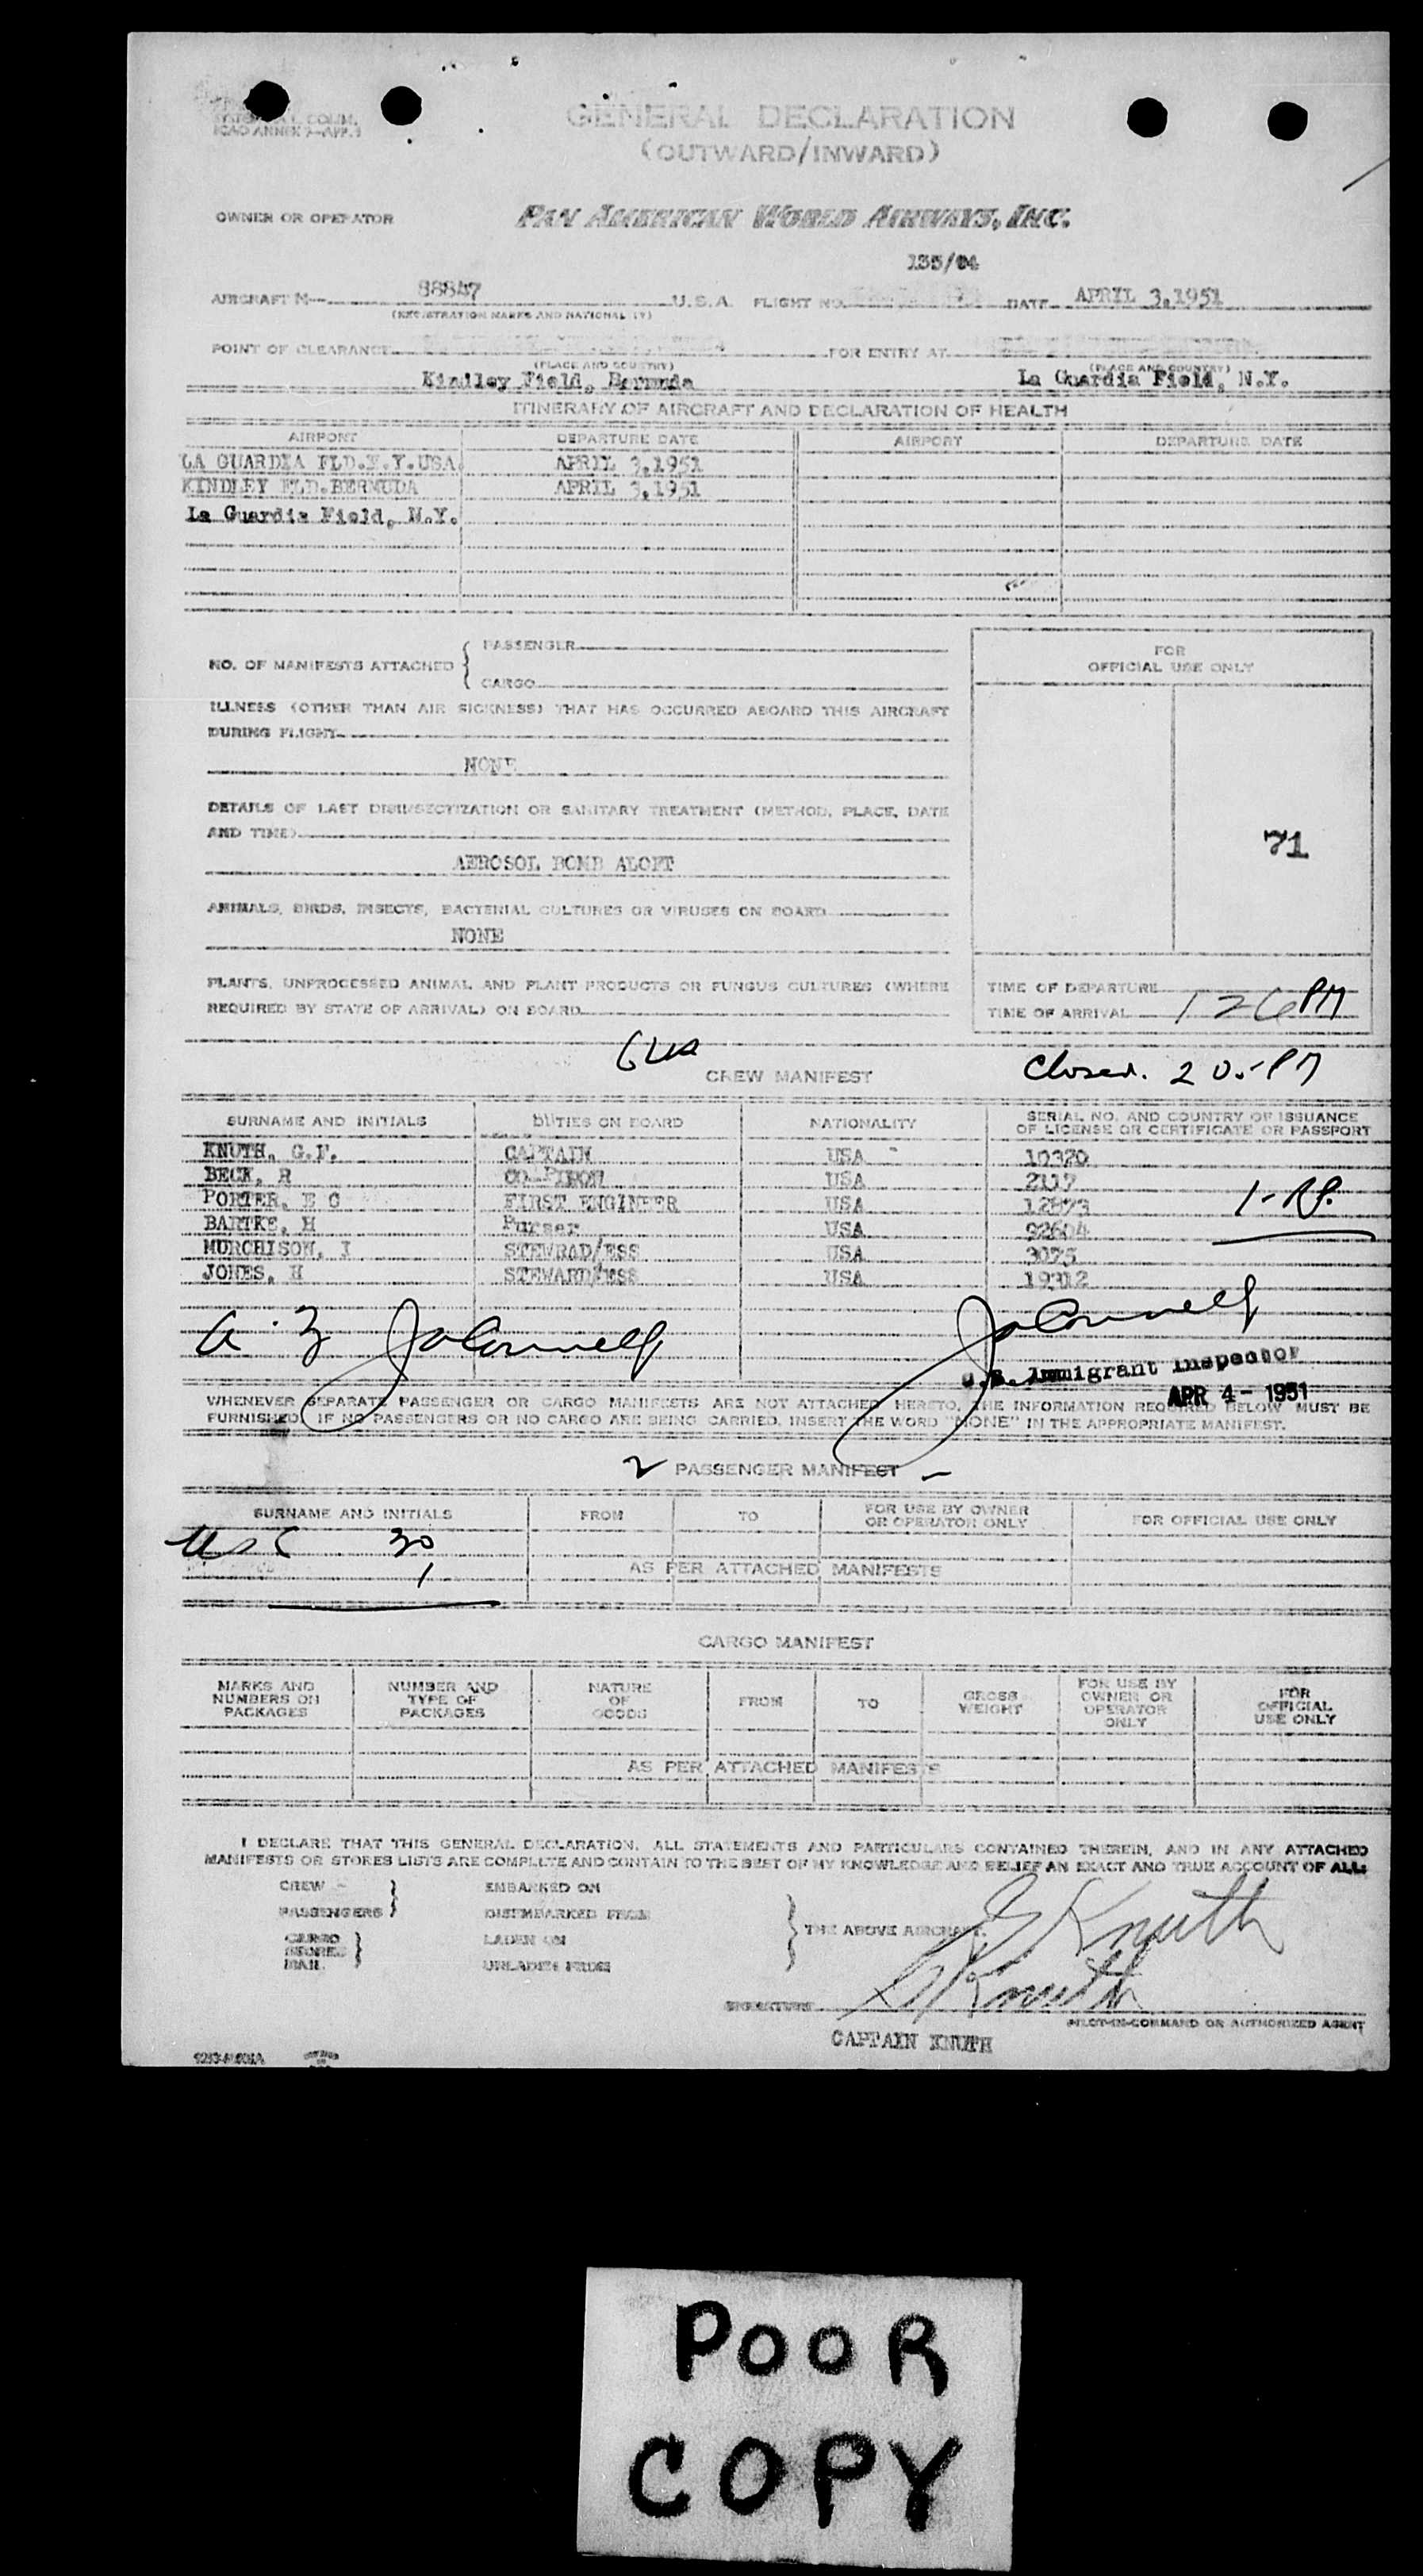 ICAO ANNEX 9-APP.1
GENERAL DECLARATION
(OUTWARD/INWARD)
OWNER OR OPERATOR PAN AMERICAN WORLD AIRWAYS, INC.
135/04
AIRCRAFT N- 88847 U.S.A. FLIGHT NO. DATE APRIL 3,1951
(REGISTRATION MARKS AND NATIONALITY)
POINT OF CLEARANCE FOR ENTRY AT
(PLACE AND COUNTRY) (PLACE AND COUNTRY)
Kindley Field, Bermuda La Guardia Field, N.Y.
ITINERARY OF AIRCRAFT AND DECLARATION OF HEALTH
AIRPORT DEPARTURE DATE AIRPORT DEPARTURE DATE
LA GUARDIA FLD.N.Y.USA. APRIL 3,1951
KINDLEY FLD.BERMUDA APRIL 3,1951
La Guardia Field, N.Y.
NO. OF MANIFESTS ATTACHED PASSENGER
CARGO
FOR
OFFICIAL USE ONLY
ILLNESS (OTHER THAN AIR SICKNESS) THAT HAS OCCURRED ABOARD THIS AIRCRAFT
DURING FLIGHT
NONE
DETAILS OF LAST DISINSECTIZATION OR SANITARY TREATMENT (METHOD, PLACE, DATE
AND TIME)
71
AEROSOL BOMB ALOFT
ANIMALS, BIRDS, INSECTS, BACTERIAL CULTURES OR VIRUSES ON BOARD
NONE
PLANTS, UNPROCESSED ANIMAL AND PLANT PRODUCTS OR FUNGUS CULTURES (WHERE
REQUIRED BY STATE OF ARRIVAL) ON BOARD
TIME OF DEPARTURE
TIME OF ARRIVAL 126 PM
CREW MANIFEST
Closed. 205 PM
SURNAME AND INITIALS DUTIES ON BOARD NATIONALITY SERIAL NO. AND COUNTRY OF ISSUANCE
OF LICENSE OR CERTIFICATE OR PASSPORT
KNUTH, G.F. CAPTAIN USA 10320
BECK, R USA 2117
PORTER, E C FIRST ENGINEER USA 12873
BARTKE, H Purser USA 92604
MURCHISON, I STEWRAD/ESS USA 3075
JONES, H STEWARD/ESS USA 19312
U.S. Immigrant Inspector
APR 4- 1951
WHENEVER SEPARATE PASSENGER OR CARGO MANIFESTS ARE NOT ATTACHED HERETO, THE INFORMATION REQUIRED BELOW MUST BE
FURNISHED. IF NO PASSENGERS OR NO CARGO ARE BEING CARRIED, INSERT THE WORD "NONE" IN THE APPROPRIATE MANIFEST.
2 PASSENGER MANIFEST -
SURNAME AND INITIALS FROM TO FOR USE BY OWNER
OR OPERATOR ONLY FOR OFFICIAL USE ONLY
USC 30
1
AS PER ATTACHED MANIFESTS
CARGO MANIFEST
MARKS AND
NUMBERS ON
PACKAGES
NUMBER AND
TYPE OF
PACKAGES
NATURE
OF
GOODS
FROM
TO
GROSS
WEIGHT
FOR USE BY
OWNER OR
OPERATOR
ONLY
FOR
OFFICIAL
USE ONLY
AS PER ATTACHED MANIFESTS
I DECLARE THAT THIS GENERAL DECLARATION, ALL STATEMENTS AND PARTICULARS CONTAINED THEREIN, AND IN ANY ATTACHED
MANIFESTS OR STORES LISTS ARE COMPLETE AND CONTAIN TO THE BEST OF MY KNOWLEDGE AND BELIEF AN EXACT AND TRUE ACCOUNT OF ALL:
CREW EMBARKED ON
PASSENGERS DISEMBARKED FROM
CARGO
STORES
MAIL
LADEN ON
UNLADEN FROM
THE ABOVE AIRCRAFT.
G Knuth
G Knuth
SIGNATURE
PILOT-IN-COMMAND OR AUTHORIZED AGENT
CAPTAIN KNUTH
POOR
COPY